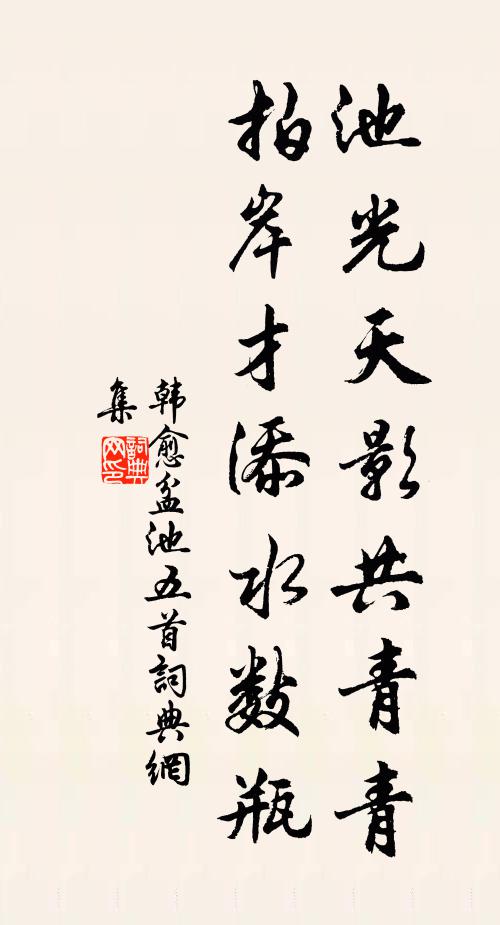 池光天影共青青
拍岸才添水数瓶
韩愈盆池五首詞典網
集
詞典網印